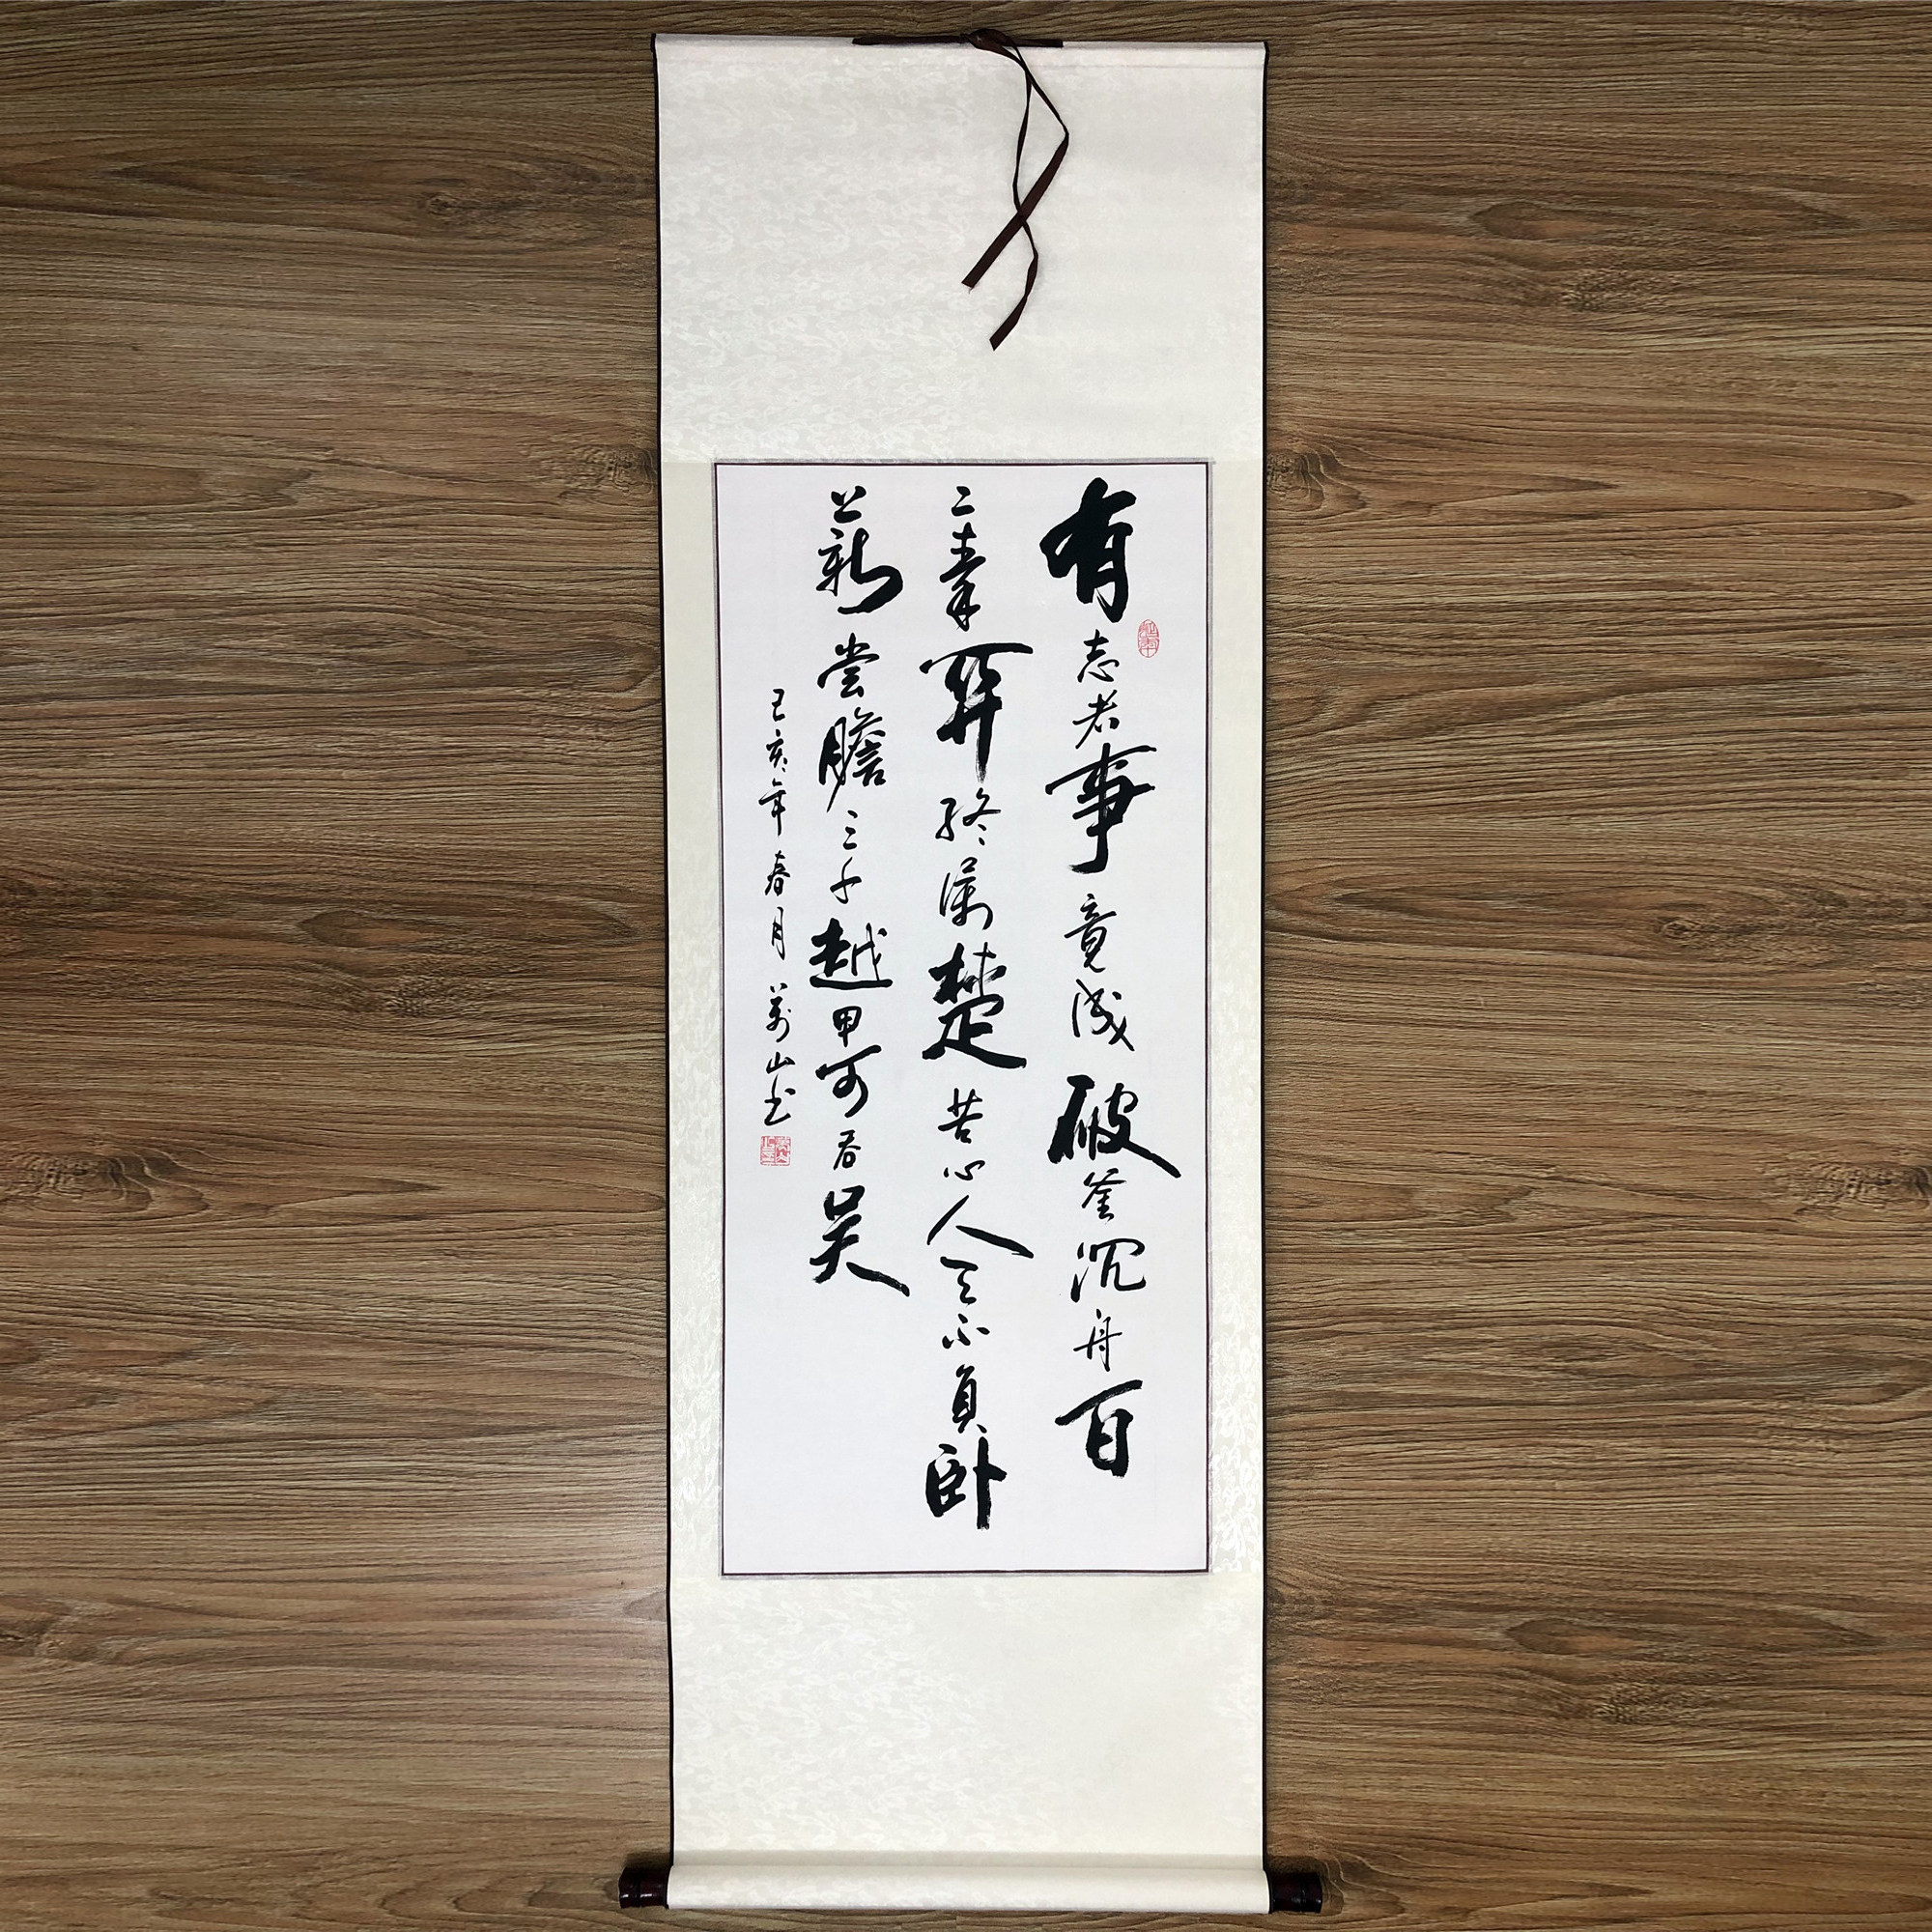 有志者事竟成破釜沉舟百
二秦关终属楚苦心人天不负卧
薪尝胆三千越甲可吞吴
己亥年春月万山书